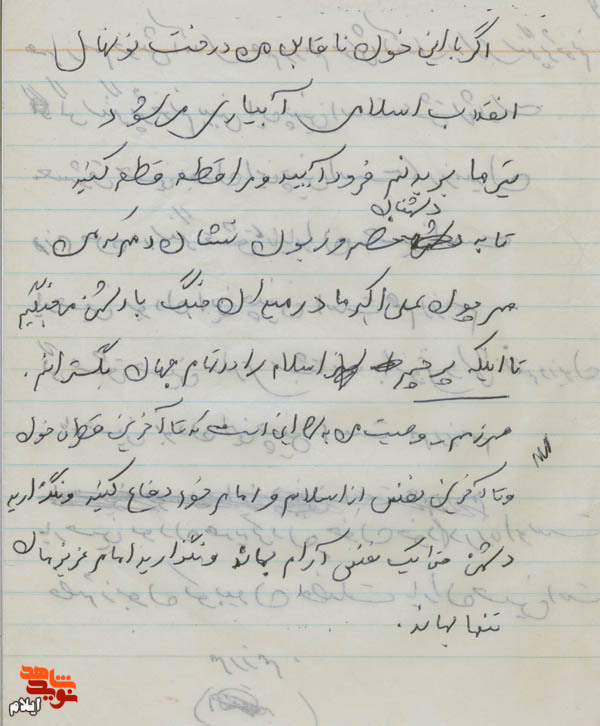 اگر با این خون نا قابل من درخت نونهال
انقلاب اسلامی آبیاری می شود
تیرها بر بدنم فرود آیید و مرا قطعه قطعه کنید
دشمنان
تا به خصم و زبون نشان دهم که من
همچون علی اکبرها در میدان جنگ با دشمن می جنگیم
تا اینکه پرچم اسلام را در تمام جهان بگسترانم.
وصیت من به شما این است که تا آخرین قطره خون
و تا آخرین نفس از اسلام و امام خود دفاع کنید و نگذارید
دشمن حتی یک نفس آرام بماند و نگذارید امام عزیزمان
تنها بماند.
نوید شاهد
ایلام